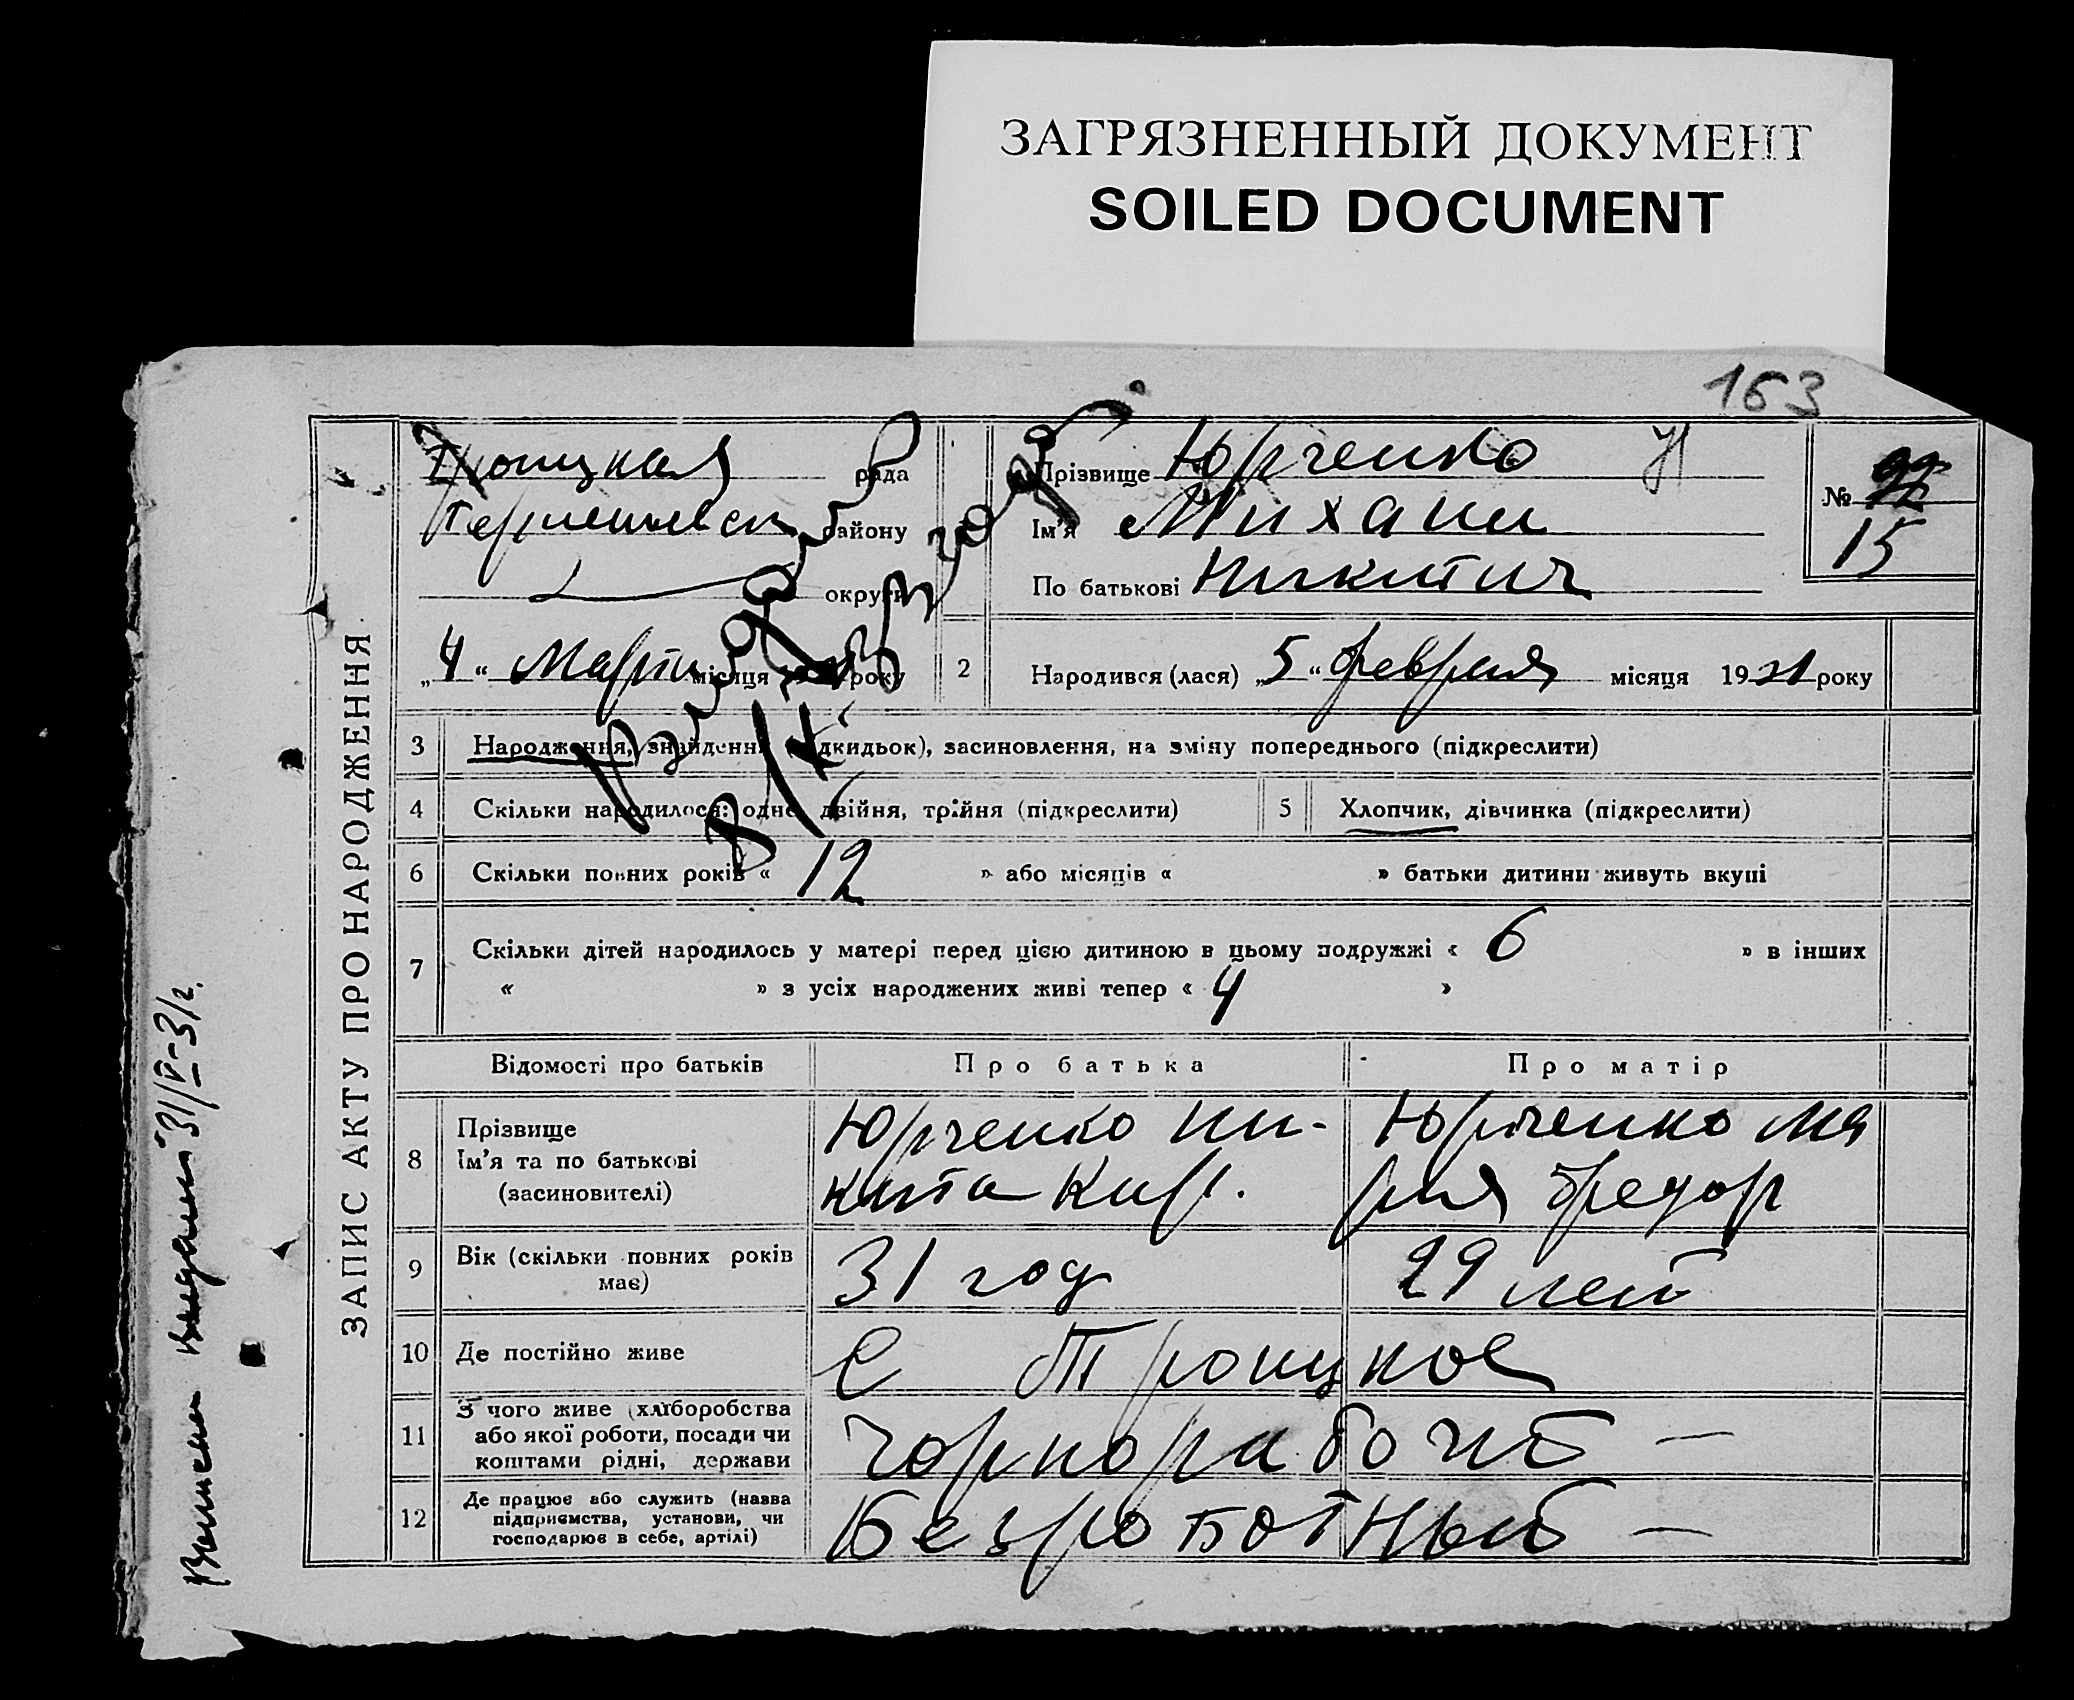 ЗАГРЯЗНЕННЫЙ ДОКУМЕНТ
SOILED DOCUMENT
163
ЗАПИС АКТУ ПРО НАРОДЖЕННЯ
Троицкая рада
району
округи
„4“ Марта місяця року
Прізвище Юрченко
Ім'я Михаил
По батькові Никитич
№ 22
15
2 Народився (лася) „5“ февраля місяця 1931 року
3 Народження, знайдення (підкидьок), засиновлення, на зміну попереднього (підкреслити)
4 Скільки народилося: одне, двійня, трійня (підкреслити)
5 Хлопчик, дівчинка (підкреслити)
6 Скільки повних років « 12 » або місяців « » батьки дитини живуть вкупі
7 Скільки дітей народилось у матері перед цією дитиною в цьому подружжі « 6 » в інших
« » з усіх народжених живі тепер « 4 »
Відомості про батьків Про батька Про матір
8 Прізвище
Ім'я та по батькові
(засиновителі)
Юрченко Ни-
кита Кир.
Юрченко Ма
рия Федор
9 Вік (скільки повних років
має)
31 год 29 лет
10 Де постійно живе с Троицкое
11 З чого живе (хліборобства
або якої роботи, посади чи
коштами рідні, держави
Чорнорабочий —
12 Де працює або служить (назва
підприємства, установи, чи
господарює в себе, артілі)
Безработный —
31/V-31г.